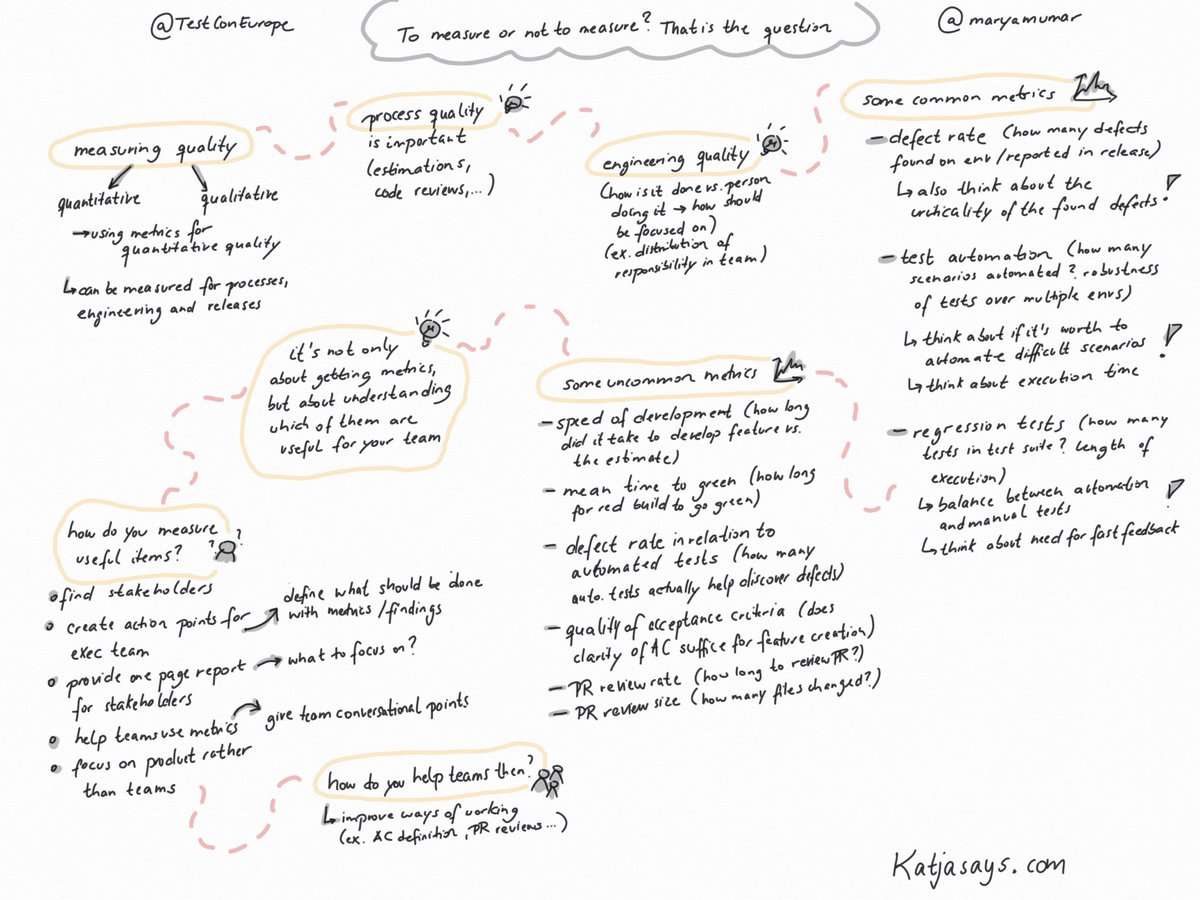 @TestConEurope
To measure or not to measure? That is the question
@maryamumar
measuring quality
quantitative
qualitative
→ using metrics for
quantitative quality
↳ can be measured for processes,
engineering and releases
process quality
is important
(estimations,
code reviews,...)
engineering quality
(how is it done vs. person
doing it → how should
be focused on)
(ex. distribution of
responsibility in team)
some common metrics
- defect rate (how many defects
found on env/reported in release)
↳ also think about the
criticality of the found defects!
- test automation (how many
scenarios automated? robustness
of tests over multiple envs)
↳ think about if it's worth to
automate difficult scenarios !
↳ think about execution time
- regression tests (how many
tests in test suite? length of
execution)
↳ balance between automation
and manual tests !
↳ think about need for fast feedback
some uncommon metrics
- speed of development (how long
did it take to develop feature vs.
the estimate)
- mean time to green (how long
for red build to go green)
- defect rate in relation to
automated tests (how many
auto. tests actually help discover defects)
- quality of acceptance criteria (does
clarity of AC suffice for feature creation)
- PR review rate (how long to review PR?)
- PR review size (how many files changed?)
it's not only
about getting metrics,
but about understanding
which of them are
useful for your team
how do you measure
useful items?
? ?
find stakeholders
create action points for
exec team
→ define what should be done
with metrics/findings
provide one page report
for stakeholders
→ what to focus on?
help teams use metrics
→ give team conversational points
focus on product rather
than teams
how do you help teams then?
↳ improve ways of working
(ex. AC definition, PR reviews...)
Katjasays.com